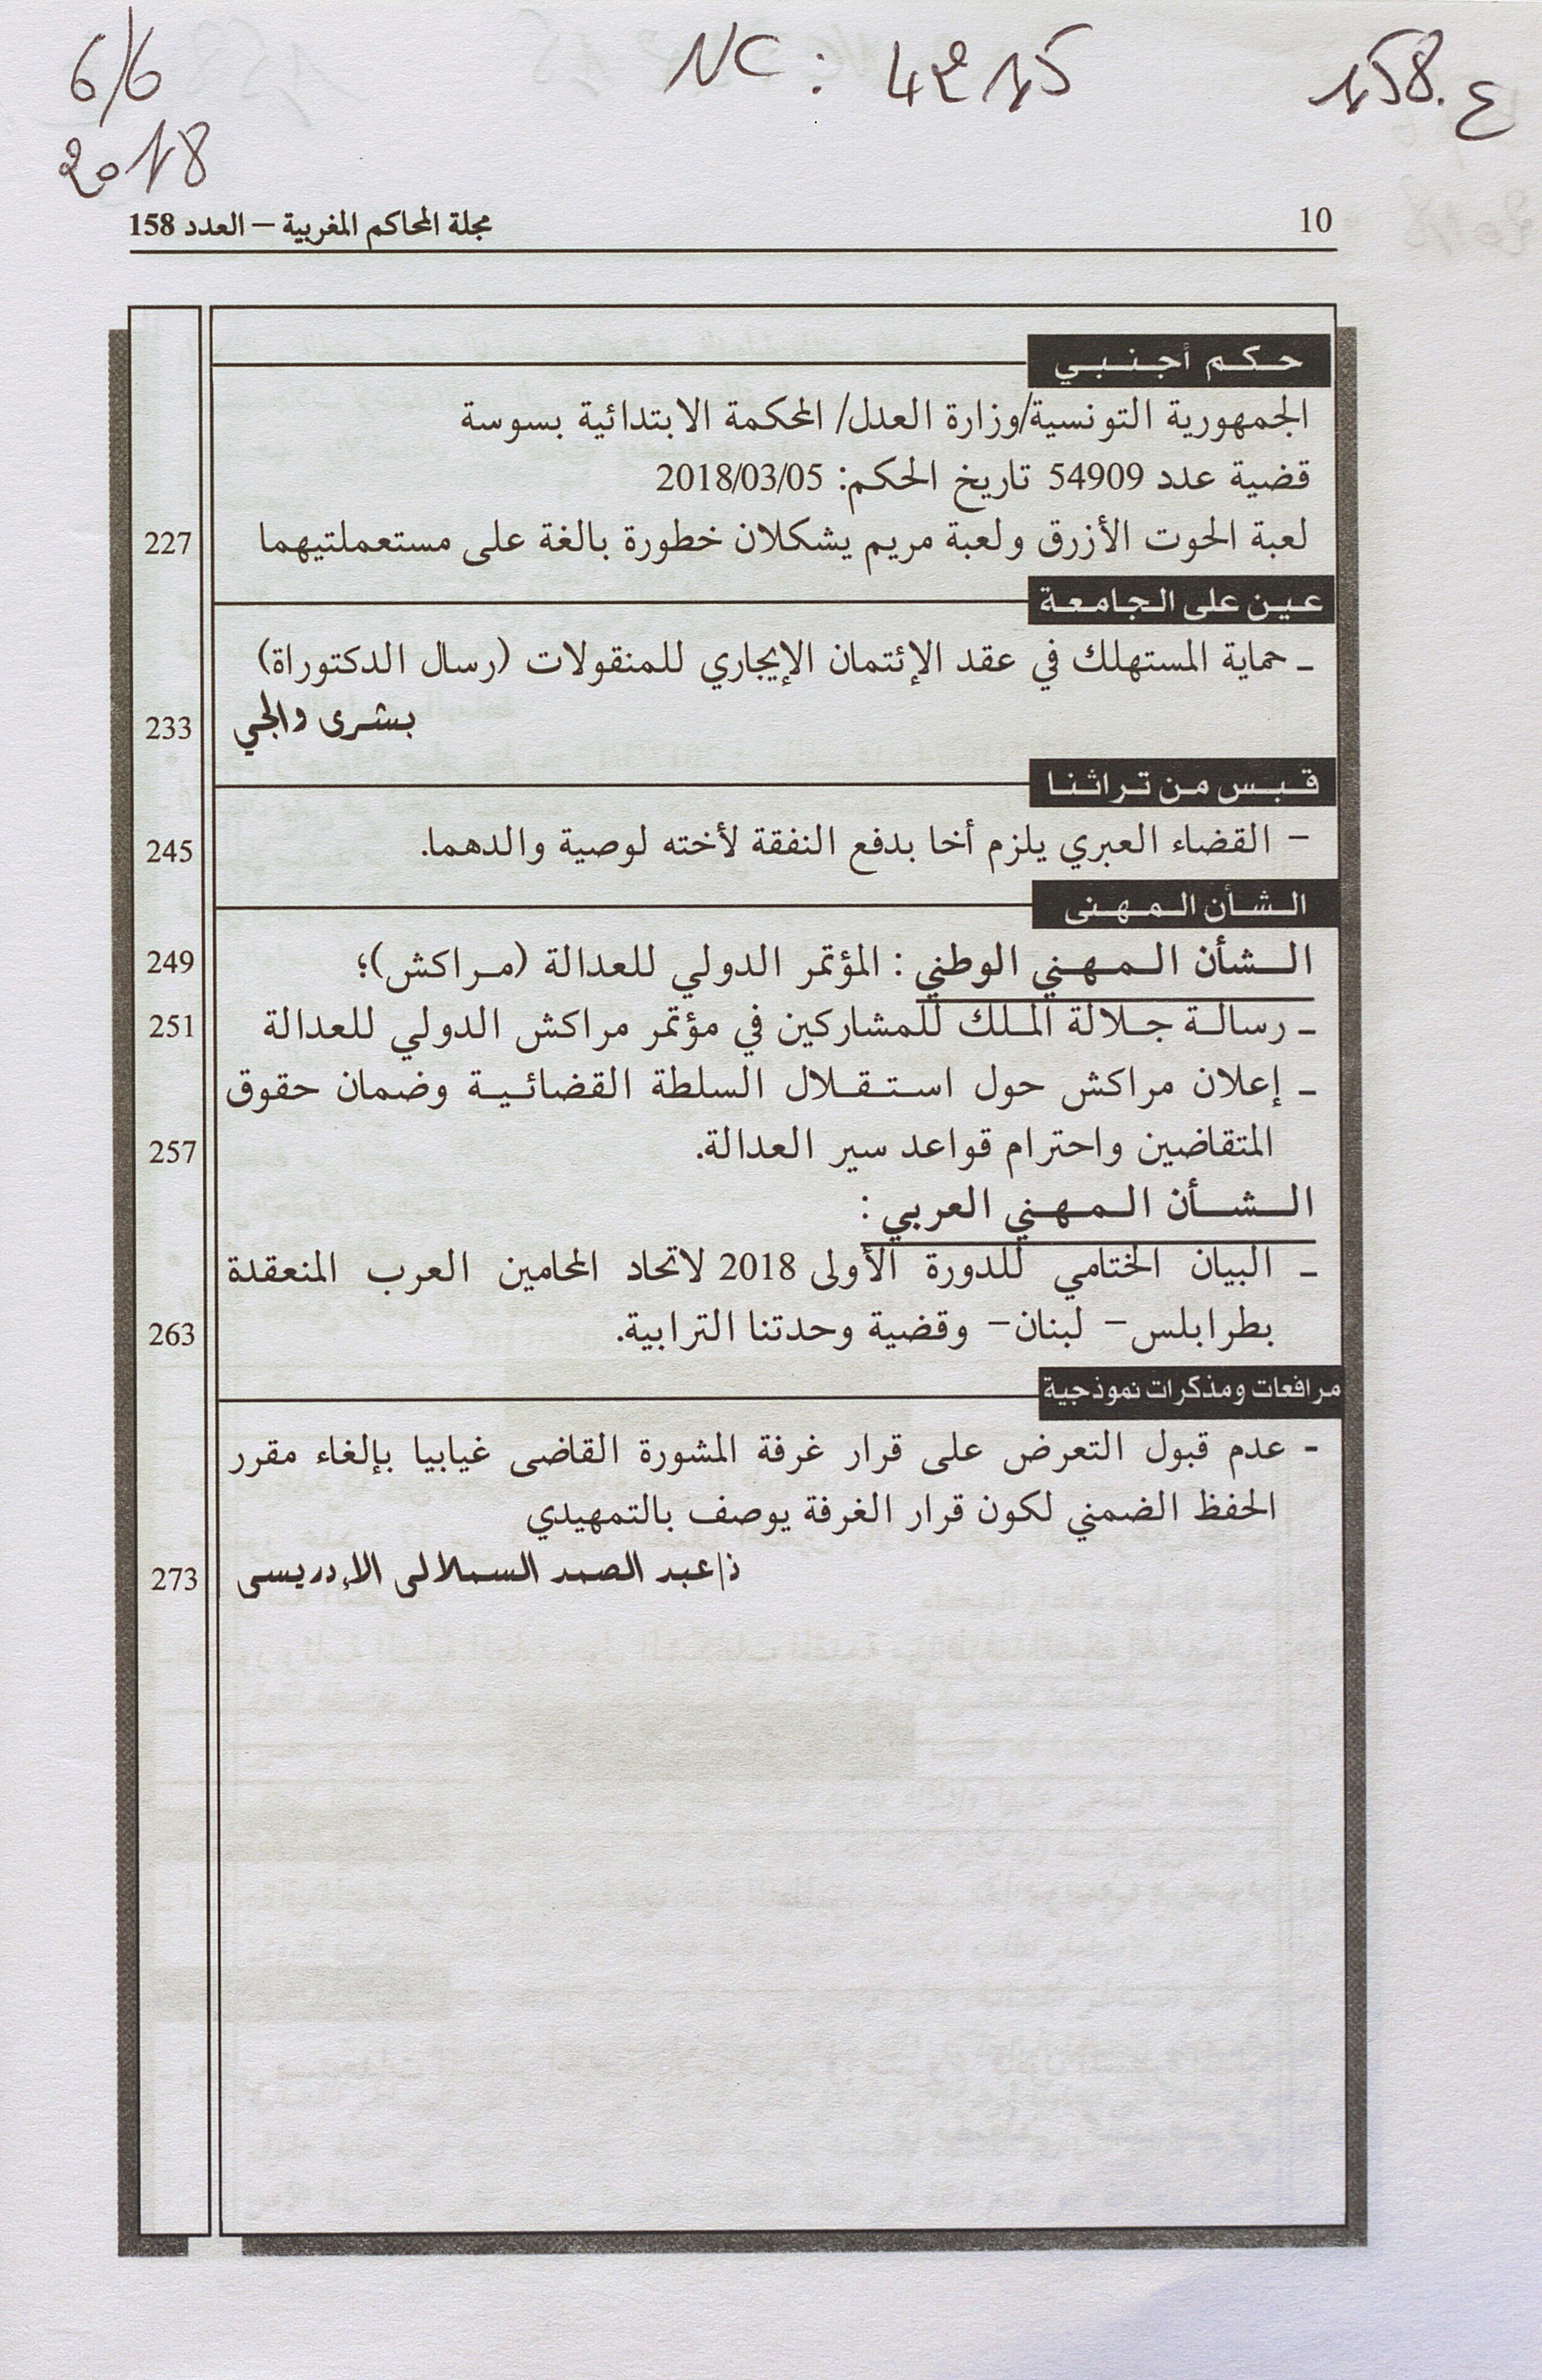 6/6
2018
NC : 4215
158.ع
10
مجلة المحاكم المغربية – العدد 158
حكم أجنبي
الجمهورية التونسية/وزارة العدل/ المحكمة الابتدائية بسوسة
قضية عدد 54909 تاريخ الحكم: 2018/03/05
لعبة الحوت الأزرق ولعبة مريم يشكلان خطورة بالغة على مستعملتيهما 227
عين على الجامعة
ـ حماية المستهلك في عقد الإئتمان الإيجاري للمنقولات (رسال الدكتوراة)
بشرى والجي 233
قبس من تراثنا
– القضاء العبري يلزم أخا بدفع النفقة لأخته لوصية والدهما. 245
الشأن المهنى
الشأن المهني الوطني : المؤتمر الدولي للعدالة (مراكش)؛ 249
ـ رسالة جلالة الملك للمشاركين في مؤتمر مراكش الدولي للعدالة 251
ـ إعلان مراكش حول استقلال السلطة القضائية وضمان حقوق
المتقاضين واحترام قواعد سير العدالة. 257
الشأن المهني العربي :
ـ البيان الختامي للدورة الأولى 2018 لاتحاد المحامين العرب المنعقدة
بطرابلس– لبنان– وقضية وحدتنا الترابية. 263
مرافعات ومذكرات نموذجية
- عدم قبول التعرض على قرار غرفة المشورة القاضى غيابيا بإلغاء مقرر
الحفظ الضمني لكون قرار الغرفة يوصف بالتمهيدي
ذ/عبد الصمد السملالى الإدريسى 273